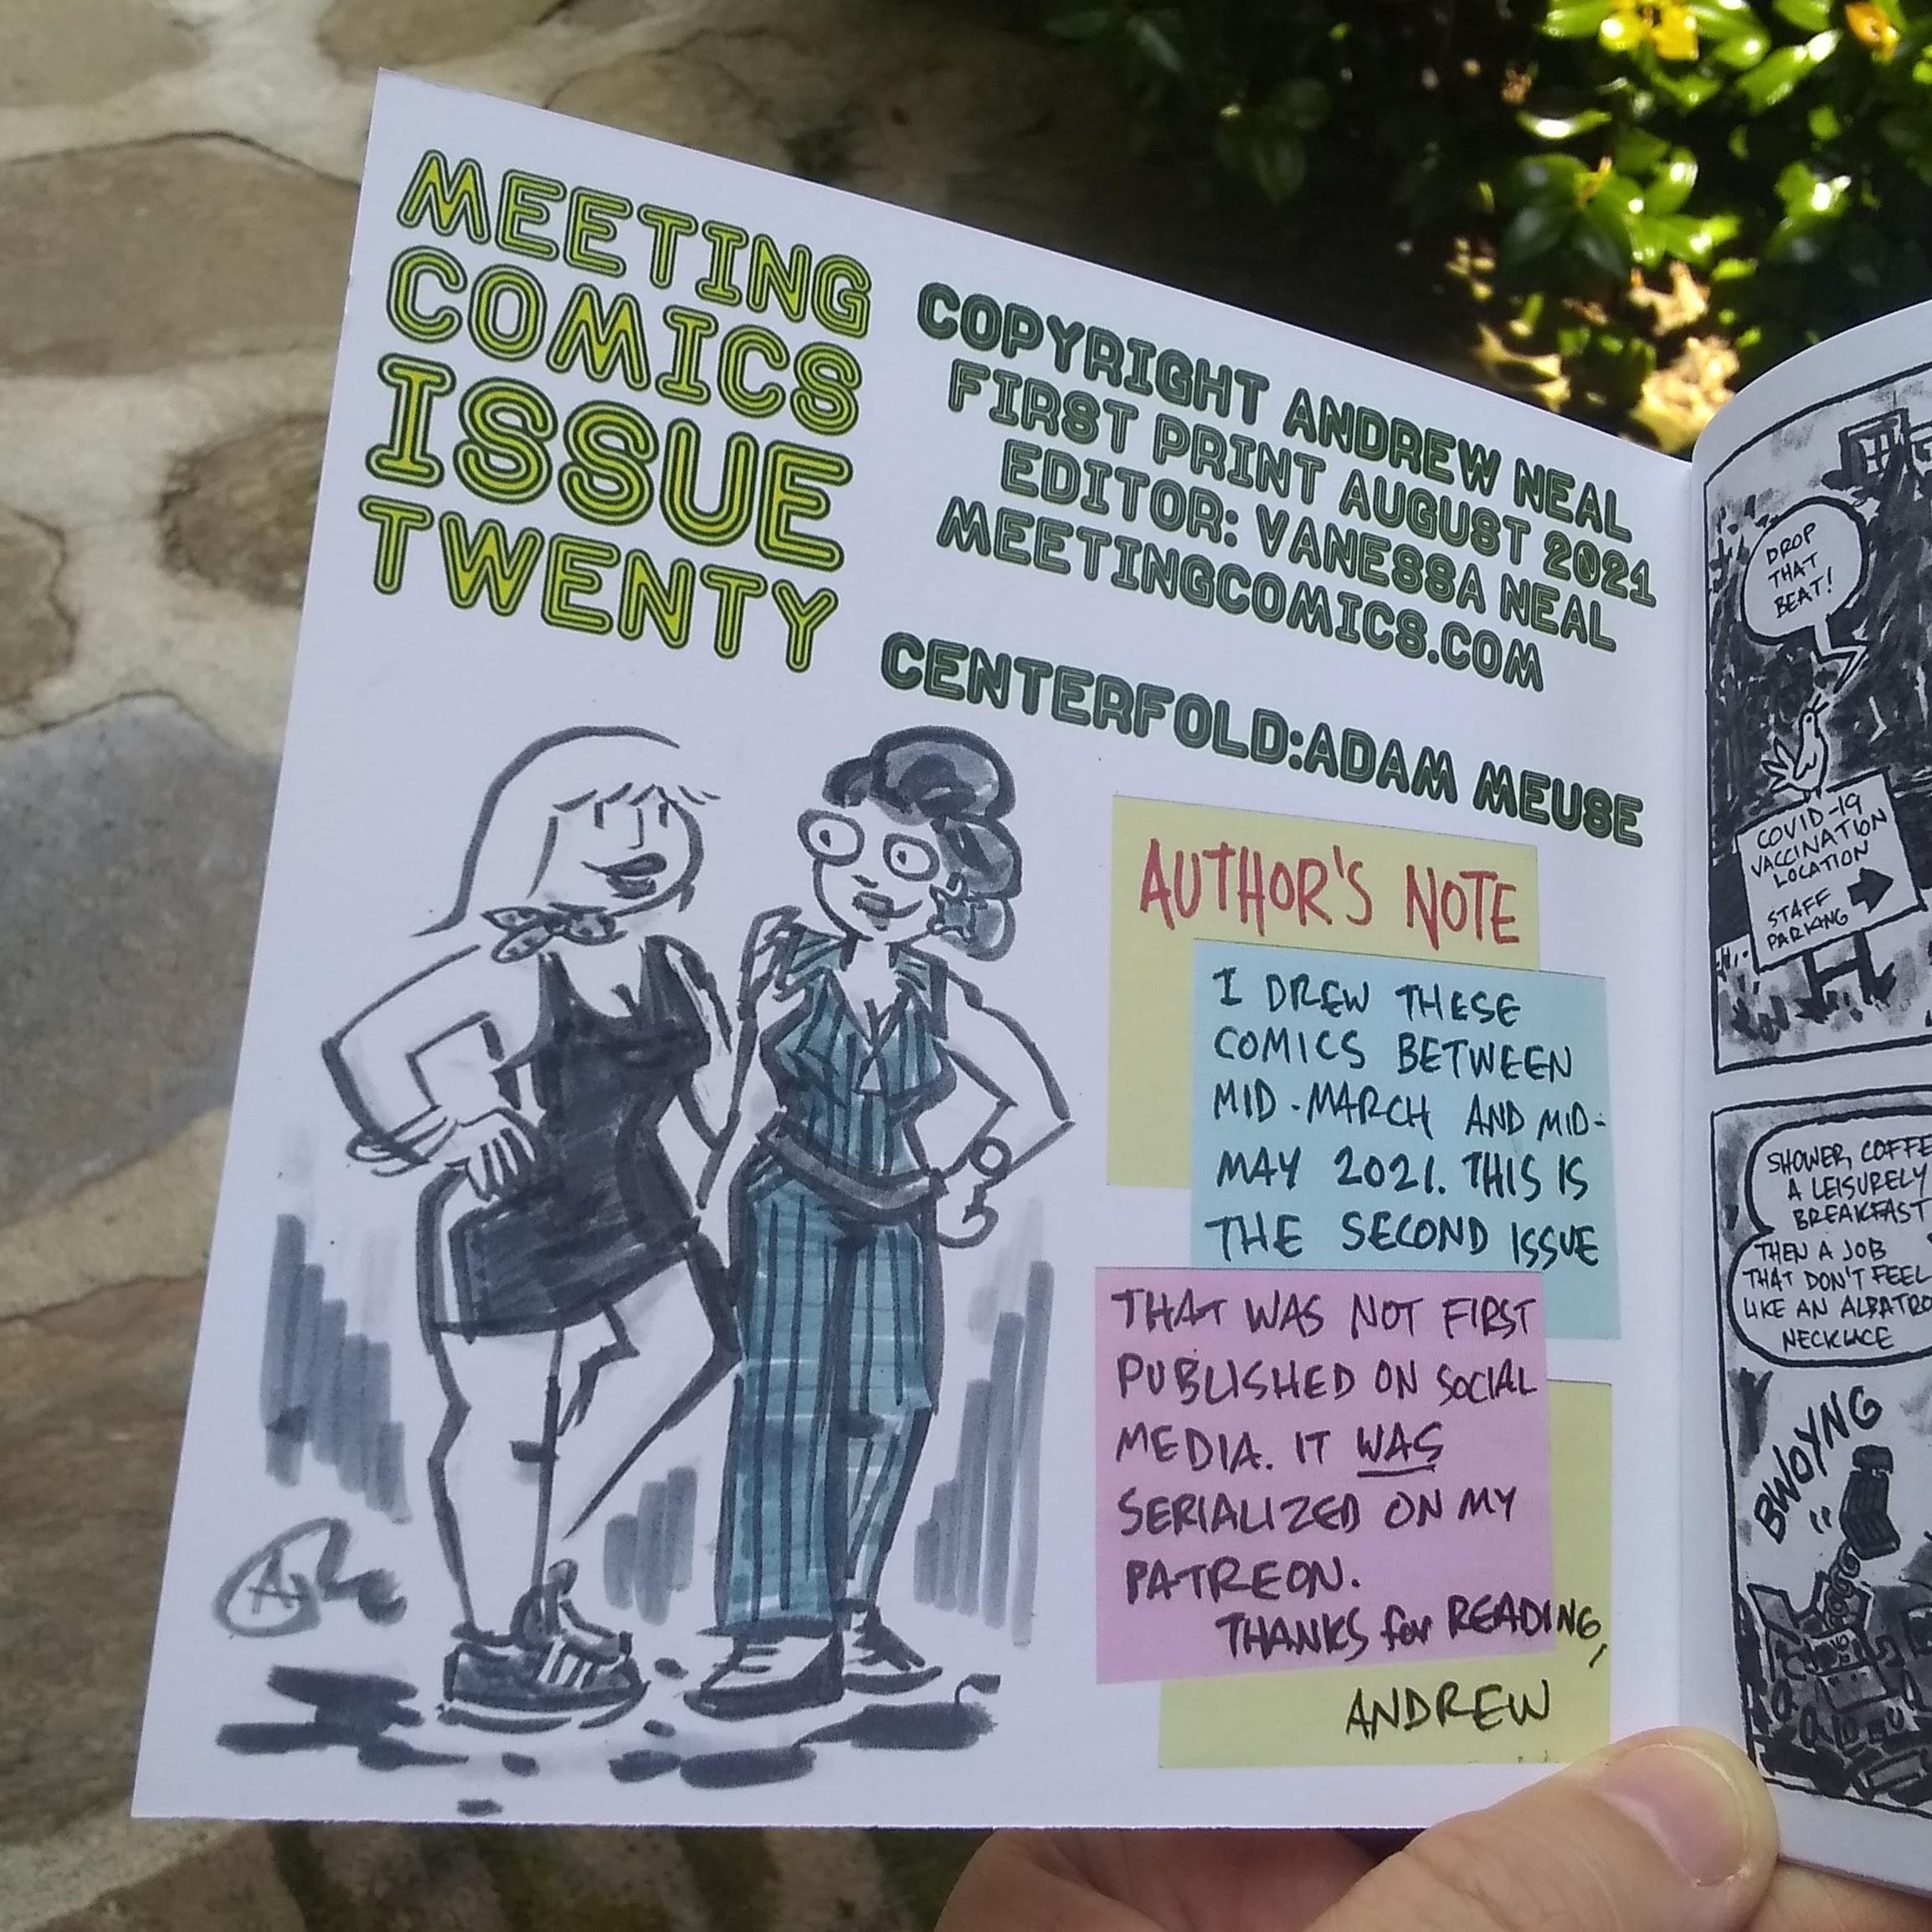 MEETING
COMICS
ISSUE
TWENTY
COPYRIGHT ANDREW NEAL
FIRST PRINT AUGUST 2021
EDITOR: VANESSA NEAL
MEETINGCOMICS.COM
CENTERFOLD:ADAM MEUSE
AUTHOR'S NOTE
I DREW THESE
COMICS BETWEEN
MID-MARCH AND MID-
MAY 2021. THIS IS
THE SECOND ISSUE
THAT WAS NOT FIRST
PUBLISHED ON SOCIAL
MEDIA. IT WAS
SERIALIZED ON MY
PATREON.
THANKS for READING,
ANDREW
DROP
THAT
BEAT!
COVID-19
VACCINATION
LOCATION
STAFF
PARKING
SHOWER, COFFE
A LEISURELY
BREAKFAST
THEN A JOB
THAT DON'T FEEL
LIKE AN ALBATRO
NECKLACE
BWOYNG